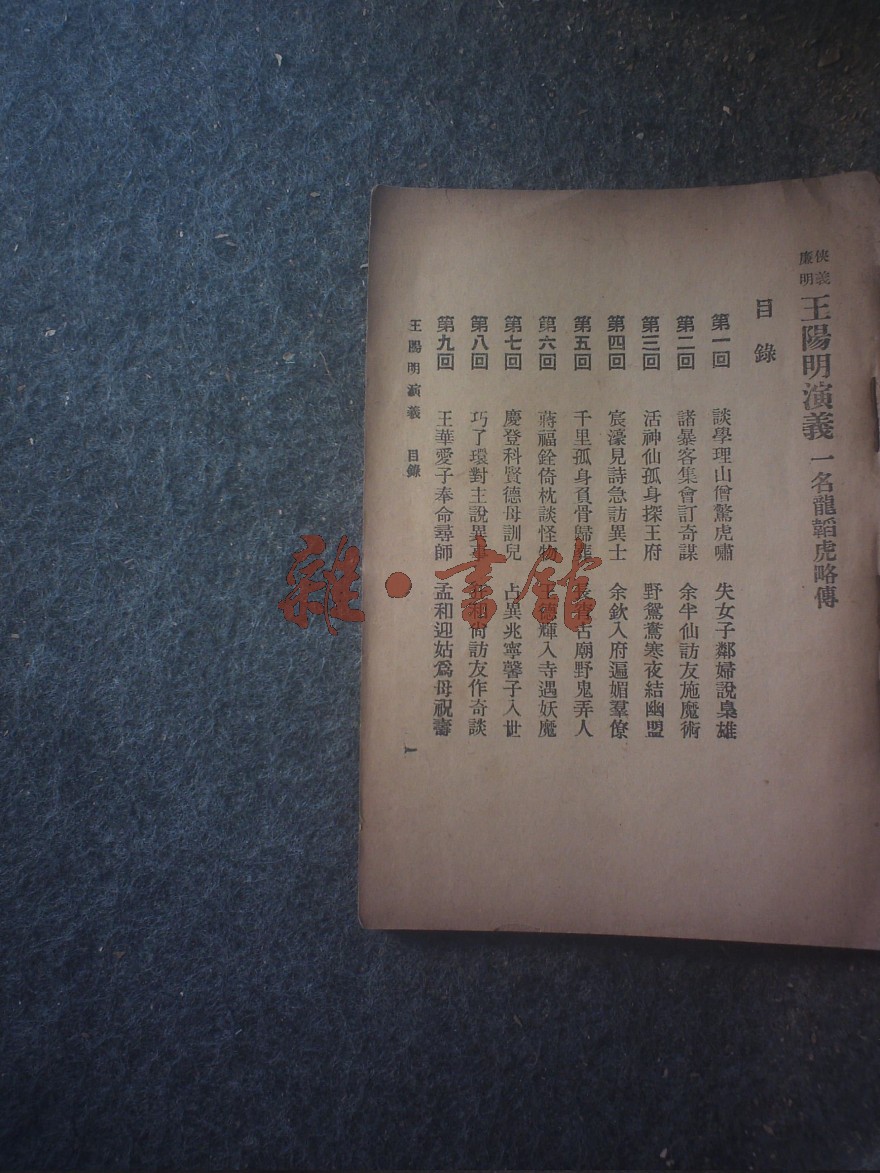 俠義
廉明
王陽明演義 一名龍韜虎略傳
目錄
第一回 談學理山僧驚虎嘯 失女子鄰婦說梟雄
第二回 諸暴客集會訂奇謀 余半仙訪友施魔術
第三回 活神仙孤身探王府 野鴛鴦寒夜結幽盟
第四回 宸濠見詩急訪異士 余欽入府遍媚羣僚
第五回 千里孤身負骨歸葬 古廟野鬼弄人
第六回 蔣福銓倚枕談怪物 德輝入寺遇妖魔
第七回 慶登科賢德母訓兒 占異兆寧馨子入世
第八回 巧了環對主說異事 和尚訪友作奇談
第九回 王華愛子奉命尋師 孟和迎姑為母祝壽
王陽明演義 目錄
一
雜·書館